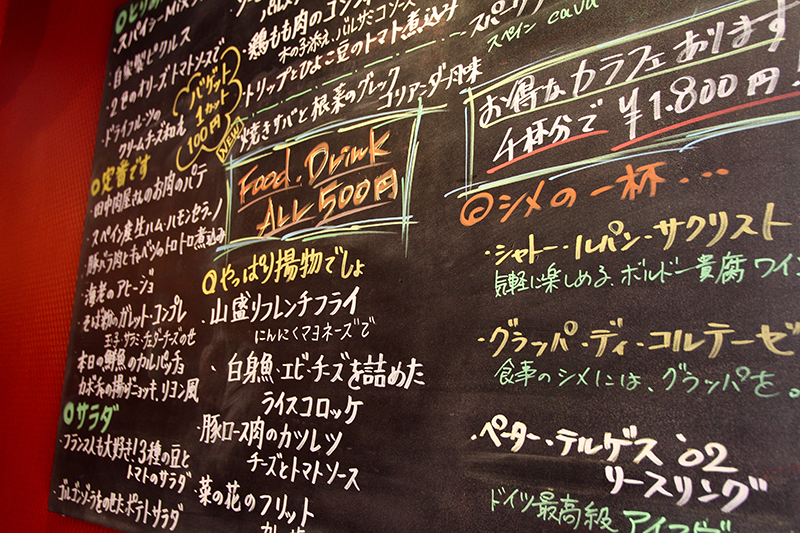 スパイシーMix
自家製ピクルス
2色のオリーブトマトソースで
ドライフルーツの
クリームチーズ和え
バゲット
1カット
100円
◎定番です
田中肉屋さんのお肉のパテ
スペイン産生ハム・ハモンセラーノ
豚バラ肉とキャベツのトロトロ煮込み
海老のアヒージョ
そば粉のガレット・コンプレ
玉子・サラミ・チェダーチーズのせ
本日の鮮魚のカルパッチョ
カボチャの揚げニョッキ、リヨン風
◎サラダ
フランス人も大好き!3種の豆と
トマトのサラダ
ゴルゴンゾーラをのせたポテトサラダ
鶏もも肉のコンフィ
木の子添え、バルサミコソース
トリップとひよこ豆のトマト煮込み
NEW
焼きサバと根菜のグレック
コリアンダー風味
Food・Drink
ALL 500円
◎やっぱり揚物でしょ
・山盛りフレンチフライ
にんにくマヨネーズで
・白身魚・エビ・チーズを詰めた
ライスコロッケ
・豚ロース肉のカツレツ
チーズとトマトソース
・菜の花のフリット
スペイン cava
お得なカラフェあります
4杯分で ¥1.800円!
◎シメの一杯・・・
・シャトー・ルパン・サクリスト
気軽に楽しめる、ボルドー貴腐ワイン
・グラッパ・ディ・コルテーゼ
食事のシメには、グラッパを。
・ペーター・テルゲス '02
リースリング
ドイツ最高級